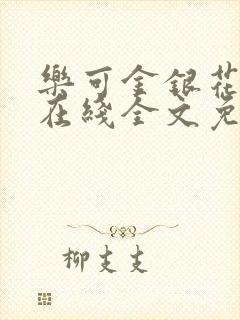 樂可金銀花
在綫全文免
柳支支